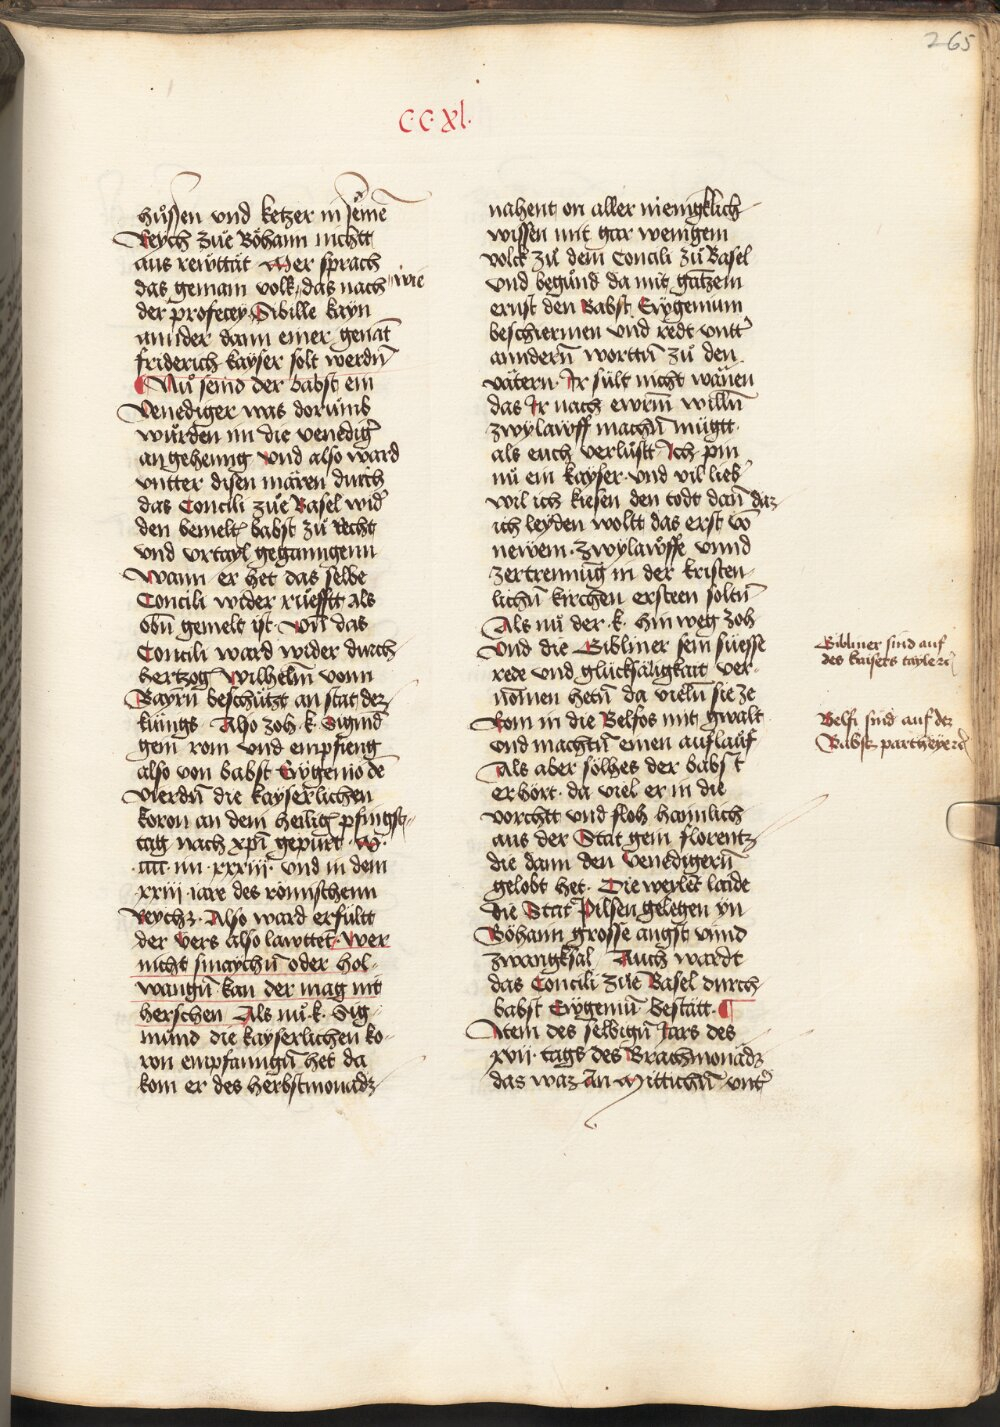 265
C·C·Xl·
hůssen vnd ketzer in seinē
Reych zůe Böhann nichtt
aus rewttät Mer sprach
das gemain volk, das nach wie
der profecey Sibille kayn
annder dann einer genāt
friderich kayser solt werdn̄
¶ Nu seind der babst ein
Venediger was dorumb
wurden im die venedig̉
angeheng vnd also ward
vntter disen mären durch
das Concili zůe Basel wid̉
den bemelt̄ babst zů recht
vnd vrtayl geganngenn
Wann er het das selbe
Concili wider rüefftt als
obn̄ gemelt ist· Vn̄ das
Concili ward wider durch
hertzog wilhelm̄ vonn
Bayrn̄ beschützt an stat dez
künigs Also zoh· k· Sigmd̄
gem rom vnd empfieng
also von babst Eẏgenio dē
vierdn̄ die kayserlichen
koron an dem heiliḡ pfingst
tag nach xpi gepurt · M·
·cccc· iiii· xxxiii· vnd in dem
xxiii iare des römischenn
Reychz· Also ward erfültt
der vers also lawttet· Wer
nicht smaychn̄ oder hol-
wangn̄ kan der mag nit
herschen Als nů· k· Sig-
mund die kayserlichen ko-
ron empfanngn̄ het da
kom er des herbstmonadz
nahent on aller menigklich
wissen mit gar wenigem
volck zů dem Concili zů Basel
vnd begund da mit gātzem
ernst den Babst Eẏgenium
beschiermen vnd redt vntt̉
anndern̄ worttn̄ zů den
vätern· Ir sült nicht wänen
das Ir nach ewrm willn̄
zwylawff machn̄ mügtt·
als euch verlüstt Ich pin
nů ein kayser· vnd vil lieb̉
wil ich kiesen den todt dan̄ daz
ich leyden woltt das erst vō
newem· zwylawffe vnnd
zertrennūg in der kristen-
lichn̄ kirchen ersteen soltn̄
Als nů der· k· hin weg zoh
Vnd die Gibliner sein süesse
rede vnd glücksäligkait ver-
nōmen hetn̄ da vieln̄ sie ze
Rom in die Belfos mit gwalt
vnd machtn̄ einen auflauf
Als aber sölhes der babst
erhört· da viel er in die
vorchtt vnd floh haimlich
aus der Stat gem florentz
die dann den Venedigern̄
gelobt het· Die weylet laide
die Stat Pilsen gelegen yn
Böhann grosse angst vnnd
zwangksal Auch wardt
das Concili zůe Basel durch
babst Eẏgeniū bestätt· ¶
Item des selbign̄ Jars des
xvii· tags des Brachmonadz
das waz An Mittichn̄ vnt̉
Gibliner sind auf
des kaisers tayle ꝛc̄
Belfi sind auf dez
Babstz partheye ꝛc̄